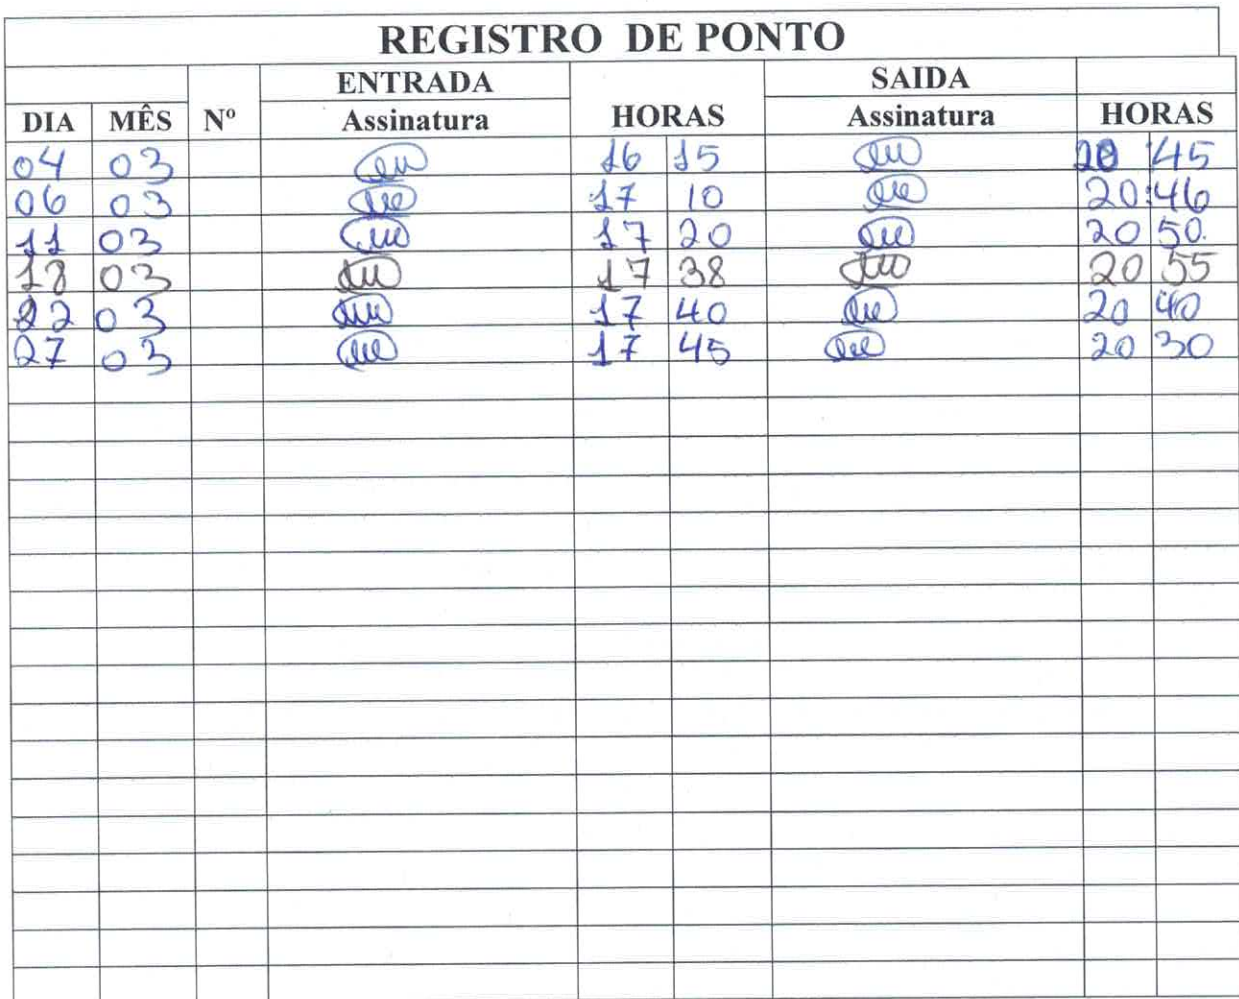 REGISTRO DE PONTO
ENTRADA SAIDA
DIA MÊS Nº Assinatura HORAS Assinatura HORAS
04 03 16 15 20 45
06 03 17 10 20:46
11 03 17 20 20 50.
18 03 17 38 20 55
22 03 17 40 20 40
27 03 17 45 20 30